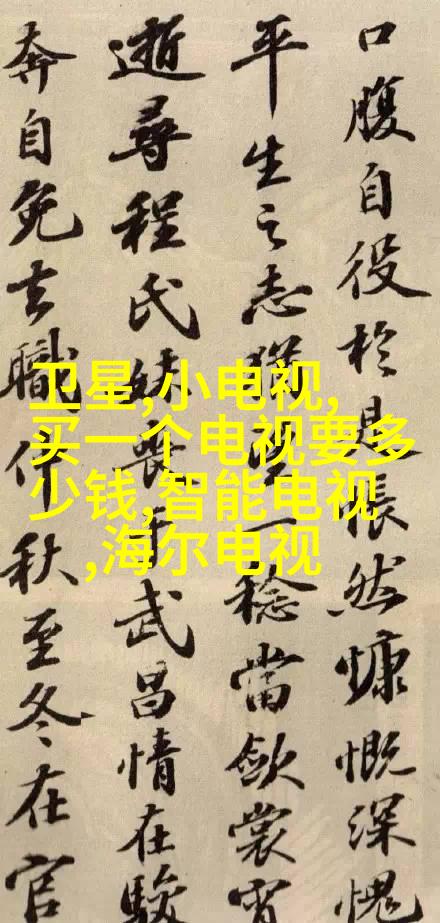 口腹自役於是悵然慷慨深愧
平生之志猶望一稔當歛裳宵
逝尋程氏妹喪于武昌情在駿
奔自免去職仲秋至冬在官
卫星,小电视,
买一个电视要多
少钱,智能电视
,海尔电视